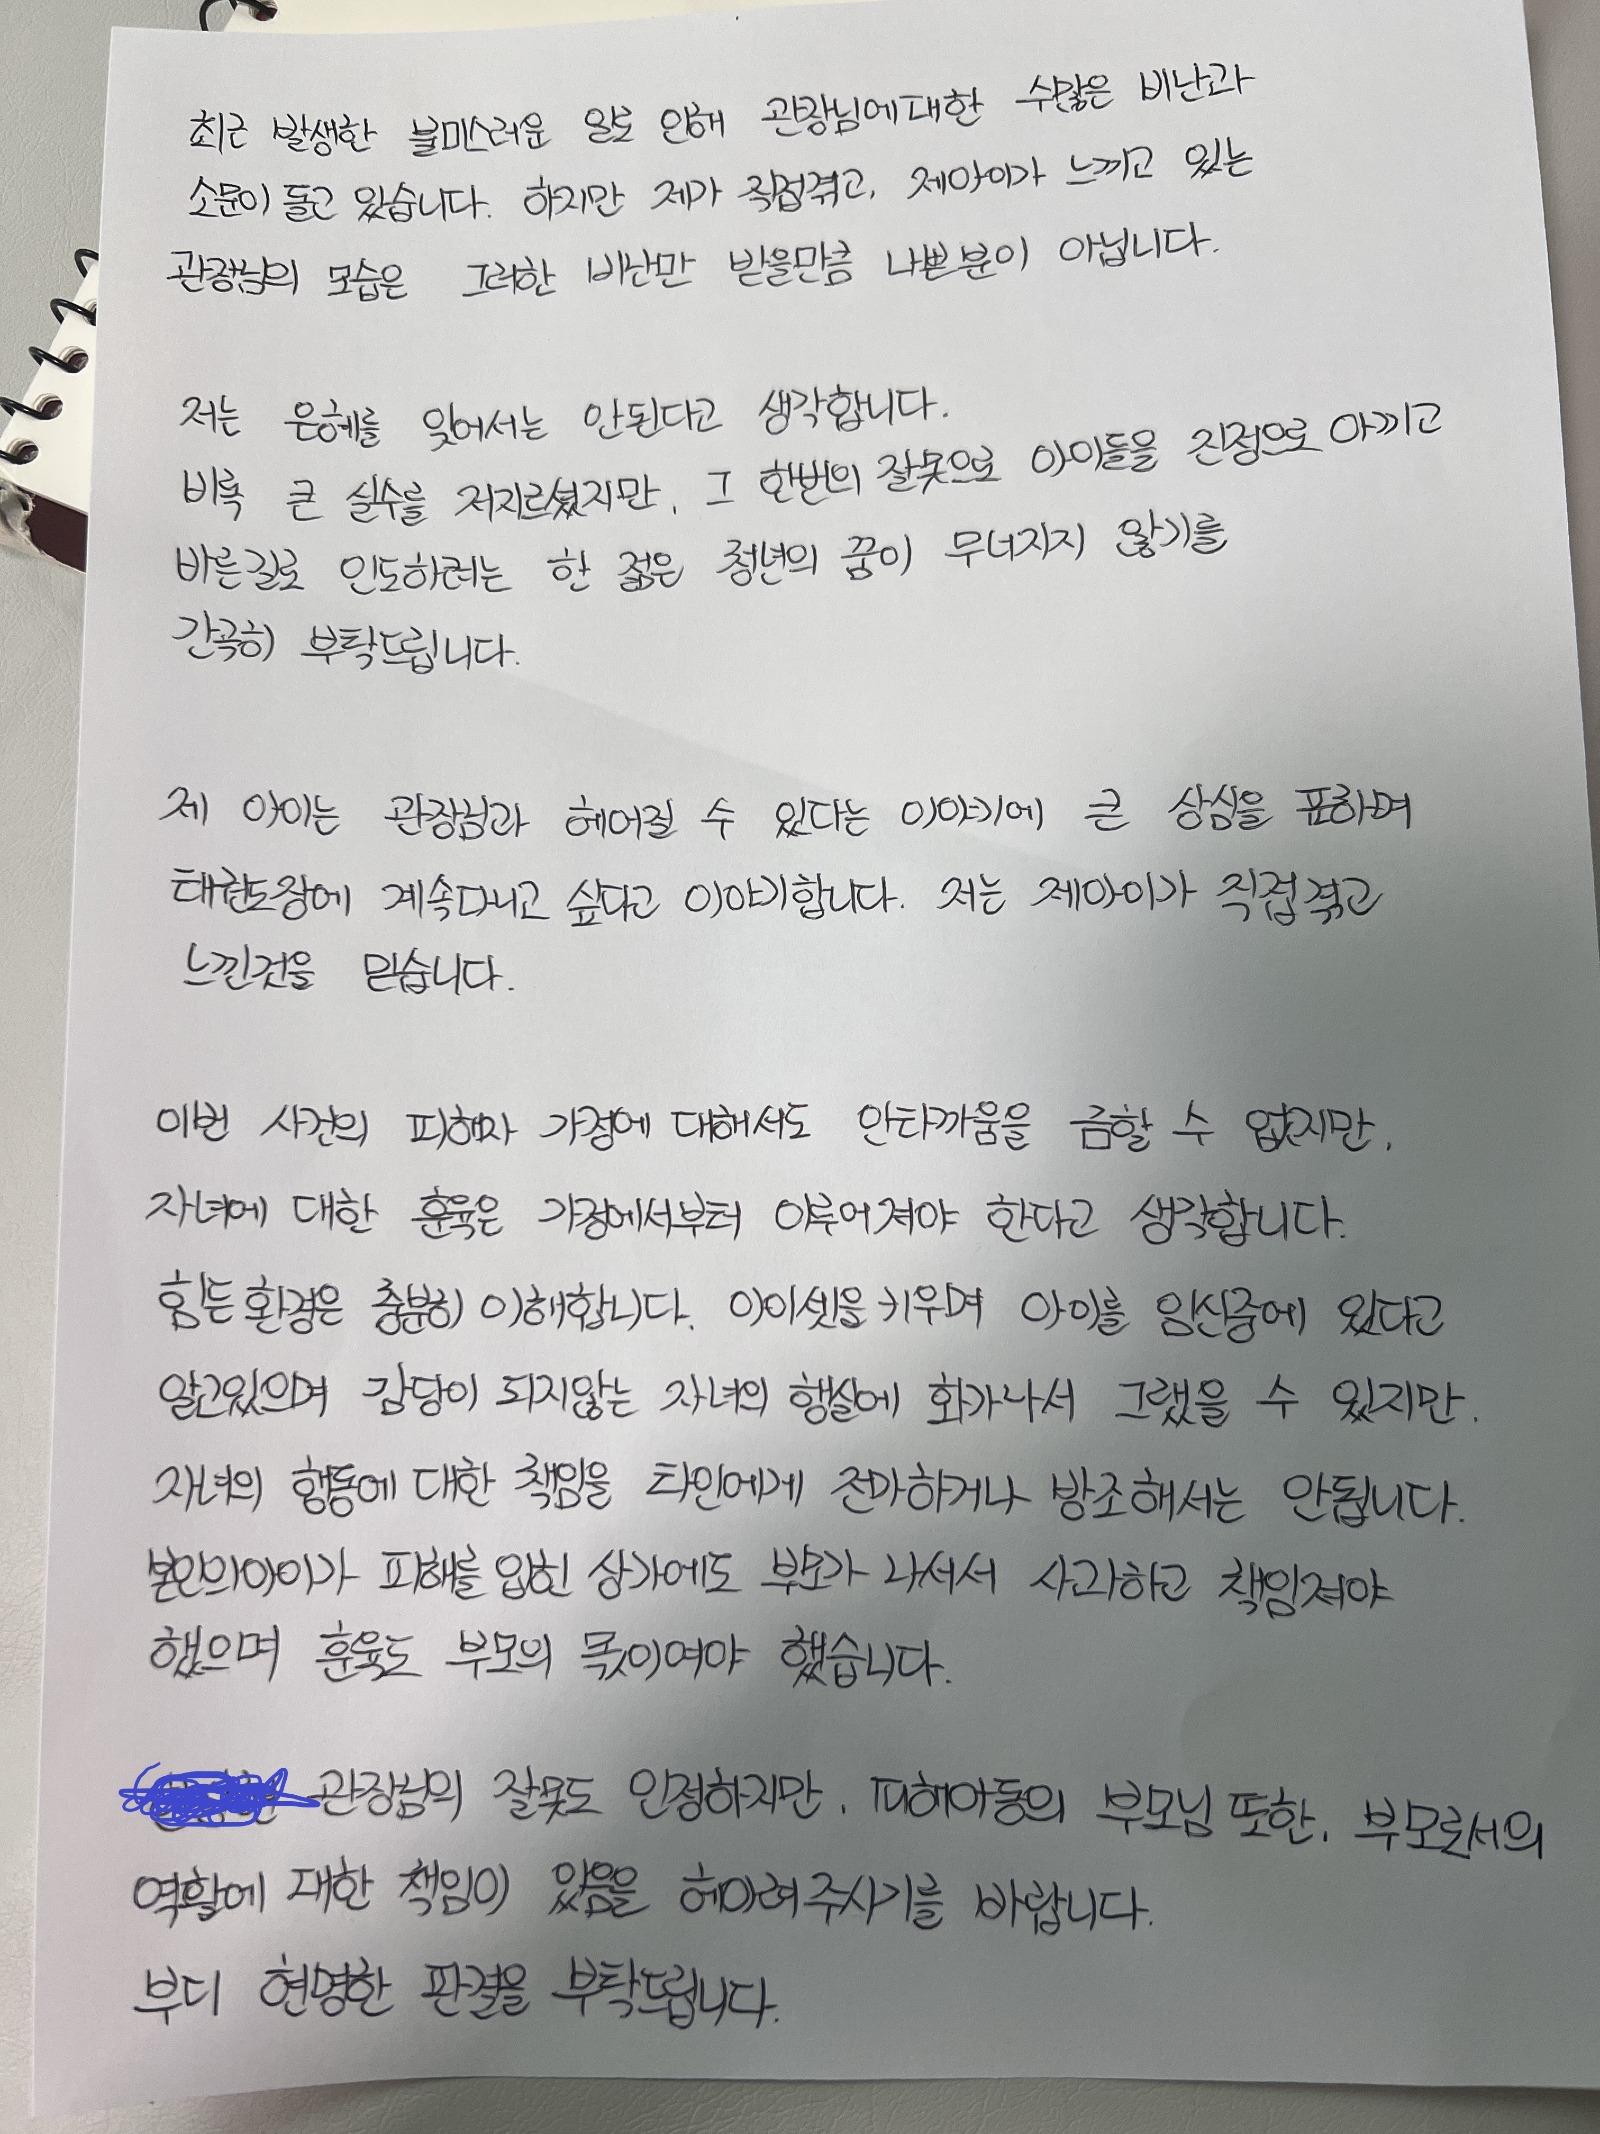 최근 발생한 불미스러운 일로 인해 관장님에대한 수많은 비난과
소문이 돌고 있습니다. 하지만 제가 직접겪고, 제아이가 느끼고 있는
관장님의 모습은 그러한 비난만 받을만큼 나쁜분이 아닙니다.
저는 은혜를 잊어서는 안된다고 생각합니다.
비록 큰 실수를 저지르셨지만, 그 한번의 잘못으로 아이들을 진정으로 아끼고
바른길로 인도하려는 한 젊은 청년의 꿈이 무너지지 않기를
간곡히 부탁드립니다.
제 아이는 관장님과 헤어질 수 있다는 이야기에 큰 상심을 표하며
태권도장에 계속다니고 싶다고 이야기합니다. 저는 제아이가 직접겪고
느낀것을 믿습니다.
이번 사건의 피해자 가정에 대해서도 안타까움을 금할 수 없지만,
자녀에 대한 훈육은 가정에서부터 이루어져야 한다고 생각합니다.
힘든환경은 충분히 이해합니다. 아이셋을키우며 아이를 임신중에 있다고
알고있으며 감당이 되지않는 자녀의 행실에 화가나서 그랬을 수 있지만,
자녀의 행동에 대한 책임을 타인에게 전가하거나 방조해서는 안됩니다.
본인의아이가 피해를 입힌 상가에도 부모가 나서서 사과하고 책임져야
했으며 훈육도 부모의 몫이여야 했습니다.
관장님의 잘못도 인정하지만, 피해아동의 부모님 또한, 부모로서의
역할에 대한 책임이 있음을 헤아려주시기를 바랍니다.
부디 현명한 판결을 부탁드립니다.